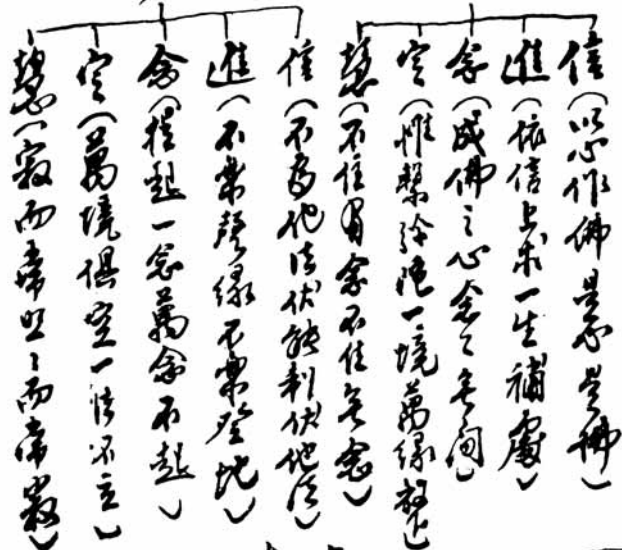 信(以心作佛是心是佛)
進(依信上求一生補處)
念(成佛之心念念無間)
定(惟繫彌陀一境萬緣放下)
慧(不住有念不住無念)
信(不為他法伏能制伏他法)
進(不樂聲緣不樂登地)
念(提起一念萬念不起)
定(萬境俱空一法不立)
慧(寂而常照照而常寂)